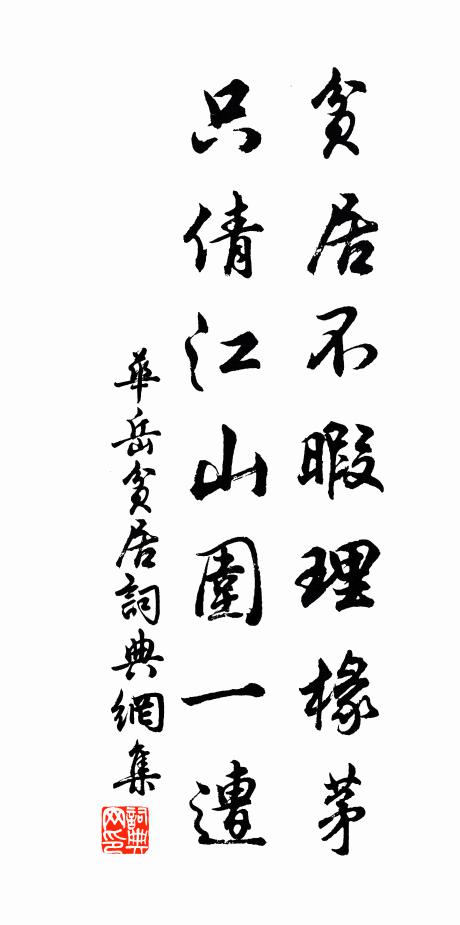 貧居不暇理椽茅
只倩江山圍一遭
華岳貧居詞典網集
詞典网印